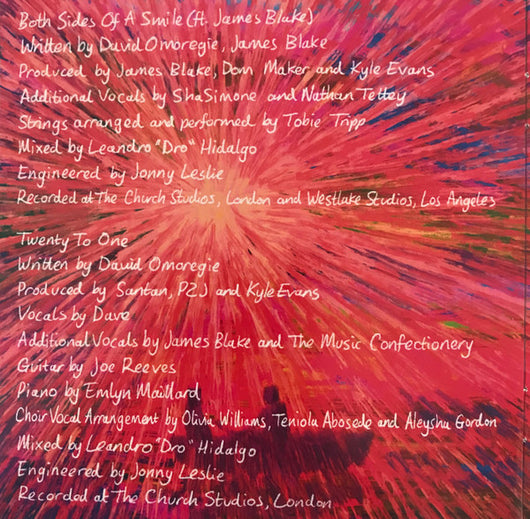 Both Sides Of A Smile (ft. James Blake)
Written by David Omoregie, James Blake
Produced by James Blake, Dom Maker and Kyle Evans
Additional Vocals by ShaSimone and Nathan Tettey
Strings arranged and performed by Tobie Tripp
Mixed by Leandro "Dro" Hidalgo
Engineered by Jonny Leslie
Recorded at The Church Studios, London and Westlake Studios, Los Angeles
Twenty To One
Written by David Omoregie
Produced by Santan, P2J and Kyle Evans
Vocals by Dave
Additional Vocals by James Blake and The Music Confectionery
Guitar by Joe Reeves
Piano by Emlyn Maillard
Choir Vocal Arrangement by Olivia Williams, Teniola Abosede and Aleysha Gordon
Mixed by Leandro "Dro" Hidalgo
Engineered by Jonny Leslie
Recorded at The Church Studios, London